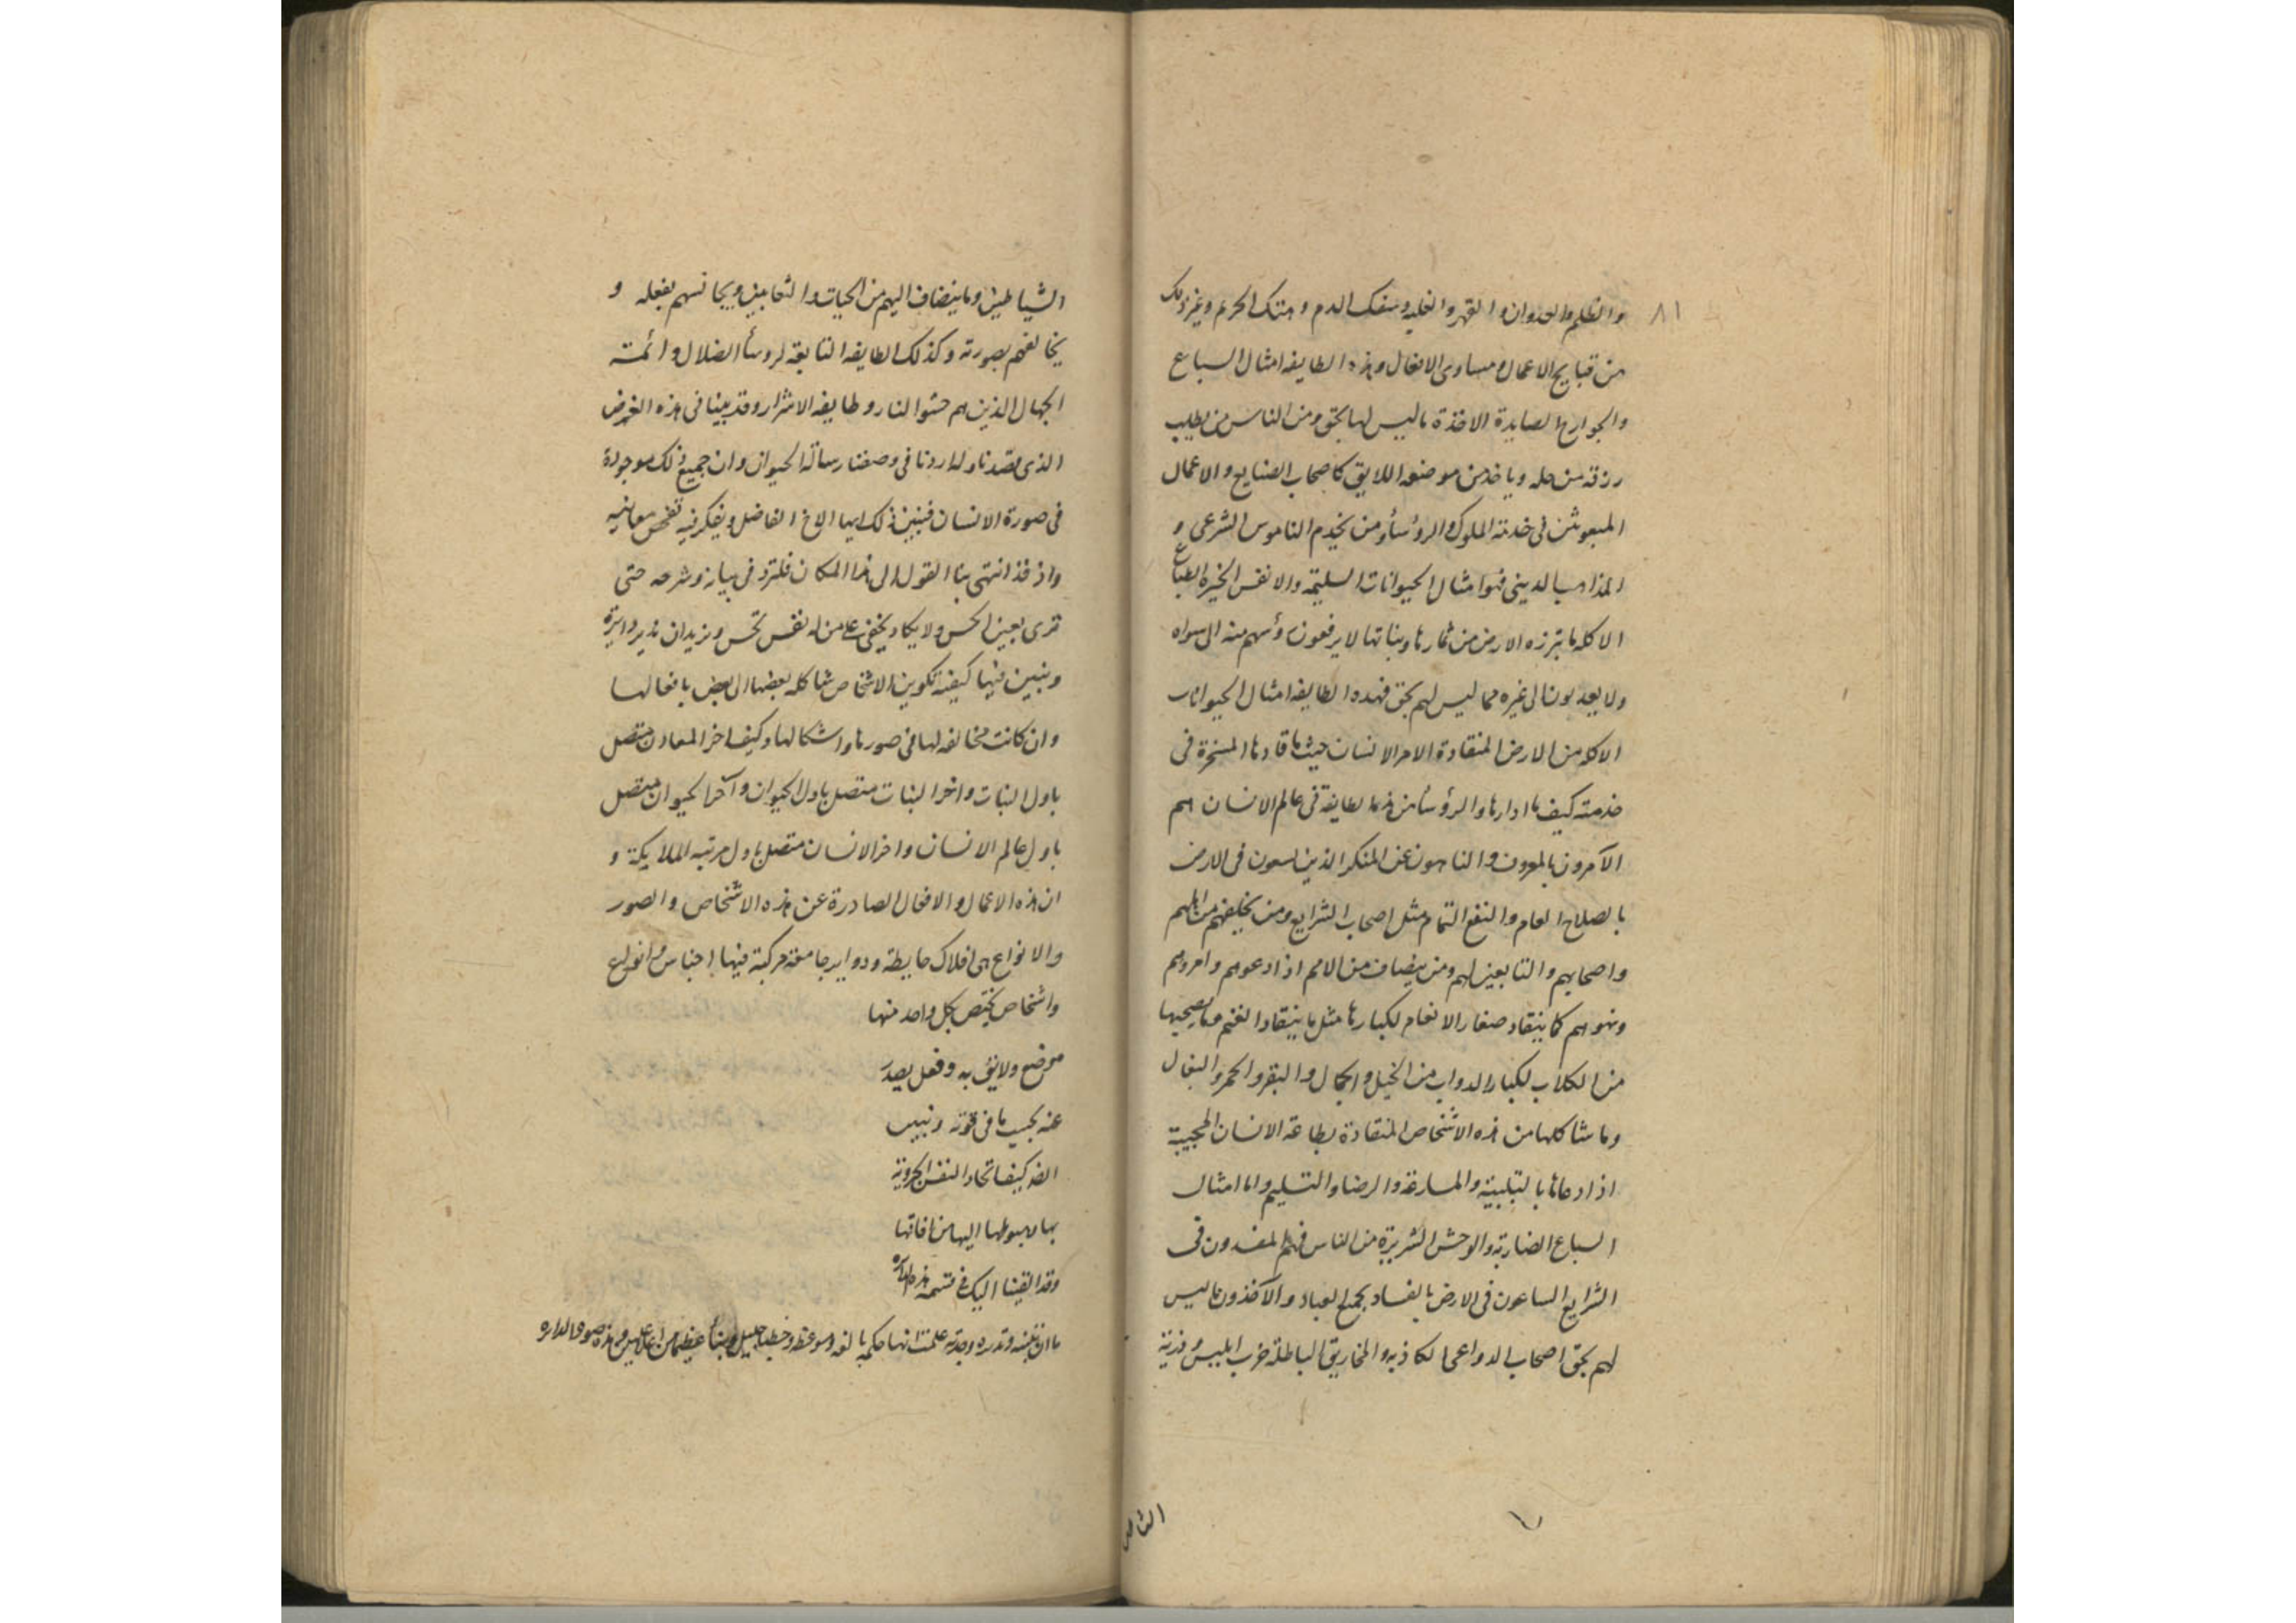 ٨١
والظلم والعدوان والقهر والغلبه وسفك الدم وهتك الحريم وغير ذلك
من قبايح الاعمال ومساوى الافعال وهذه الطايفه امثال السباع
والجوارح الصايدة الاخذة ما ليس لها بحق ومن الناس من يطلب
رزقه من حله وياخذه من موضعه اللايق كاصحاب الصنايع والاعمال
المبعوثين فى خدمة الملوك والرؤساء ومن يخدم الناموس الشرعى و
المذاهب الدينى فهو امثال الحيوانات السليمة والانفس الخيرة الطباع
الاكله ما تبرزه الارض من ثمارها ونباتها لا يرفعون رؤسهم منه الى سواه
ولا يعدون الى غيره مما ليس لهم بحق فهذه الطايفه امثال الحيوانات
الاكله من الارض المنقادة الامر الانسان حيث ما قادها المسخرة فى
خدمته كيف ما ادارها والرؤساء من هذه الطايفة فى عالم الانسان هم
الآمرون بالمعروف والناهون عن المنكر الذين يسعون فى الارض
بالصلاح العام والنفع التمام مثل اصحاب الشرايع ومن يخلفهم من اهلهم
واصحابهم والتابعين لهم ومن ينضاف من الامم اذا دعوهم وامروهم
ونهوهم كما ينقاد صغار الانعام لكبارها مثل ما ينقاد الغنم وما يصحبها
من الكلاب لكبار الدواب من الخيل والجمال والبقر والحمر والبغال
وما شاكلها من هذه الاشخاص المنقادة بطاعة الانسان المجيبة
اذا دعاها بالتلبية والمسارعة والرضا والتسليم واما امثال
السباع الضارية والوحش الشريرة من الناس فهم المفسدون فى
الشرايع الساعون فى الارض بالفساد بجميع العباد والآخذون ما ليس
لهم بحق اصحاب الدواعى الكاذبه والمخاريق الباطلة حزب ابليس وذريته
الشياطين وما ينضاف اليهم من الحيات والثعابين ويجانسهم بفعله و
يخالفهم بصورته وكذلك الطايفه التابعة لرؤساء الضلال وائمة
الجهال الذين هم حشو النار وطايفه الاشرار وقد بينا فى هذه الغرض
الذى قصدناه واردنا فى وصفنا رسالة الحيوان وان جميع ذلك موجودة
فى صورة الانسان فتبين ذلك ايها الاخ الفاضل وتفكر فيه تفهم معانيه
واذ قد انتهى بنا القول الى هذا المكان فلنزد فى بيانه وشرحه حتى
ترى بعين الحس ولا يكاد يخفى على من له نفس تحس ونريد ان ندير دايرة
ونبين فيها كيفية تكوين الاشخاص مشاكله بعضها الى بعض بافعالها
وان كانت مخالفه لها فى صورها واشكالها وكيف اخر المعادن متصل
باول النبات واخر النبات متصل باول الحيوان وآخر الحيوان متصل
باول عالم الانسان واخر الانسان متصل باول مرتبه الملايكة و
ان هذه الاعمال والافعال الصادرة عن هذه الاشخاص والصور
والانواع هى افلاك حايطة ودواير جامعة مركبة فيها اجناس وانواع
واشخاص يختص بكل واحد منها
موضع ولايق به وفعل يصدر
عنه بحسب ما فى قوته ونبين
ايضا كيف اتحاد النفس الجزوية
بها لهبوطها اليها من افاقها
وقد القينا اليك فى قسمة هذه الدايرة
ما ان تبينته وتدبره وجدته علمت انها حكمة بالغه وموعظة وخطب جليل ونبأ عظيم وهذه صورة الدايره
الشياطين